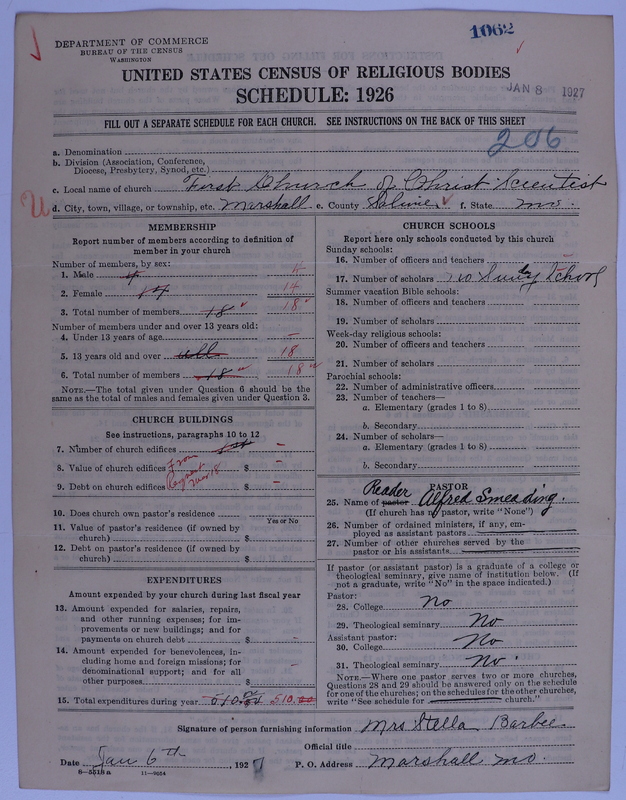 1062
DEPARTMENT OF COMMERCE
BUREAU OF THE CENSUS
WASHINGTON
UNITED STATES CENSUS OF RELIGIOUS BODIES
SCHEDULE: 1926
JAN 8 1927
FILL OUT A SEPARATE SCHEDULE FOR EACH CHURCH. SEE INSTRUCTIONS ON THE BACK OF THIS SHEET
206
a. Denomination
b. Division (Association, Conference, Diocese, Presbytery, Synod, etc.)
c. Local name of church First Church of Christ Scientist
d. City, town, village, or township, etc. Marshall e. County Saline f. State Mo.
MEMBERSHIP
Report number of members according to definition of
member in your church
Number of members, by sex:
1. Male 4 4
2. Female 14 14
3. Total number of members 18 18
Number of members under and over 13 years old:
4. Under 13 years of age –
5. 13 years old and over all 18
6. Total number of members 18 18
NOTE.—The total given under Question 6 should be
same as the total of males and females given under Question 3.
CHURCH BUILDINGS
See instructions, paragraphs 10 to 12
7. Number of church edifices –
8. Value of church edifices $ –
9. Debt on church edifices $ –
From
10. Does church own pastor's residence
Yes or No
11. Value of pastor's residence (if owned by
church) $
12. Debt on pastor's residence (if owned by
church) $
EXPENDITURES
Amount expended by your church during last fiscal year
13. Amount expended for salaries, repairs,
and other running expenses; for im-
provements or new buildings; and for
payments on church debt $ –
14. Amount expended for benevolences, in-
cluding home and foreign missions; for
denominational support; and for all
other purposes $ –
15. Total expenditures during year 510. 510.
CHURCH SCHOOLS
Report here only schools conducted by this church
Sunday schools:
16. Number of officers and teachers –
17. Number of scholars no Sunday School
Summer vacation Bible schools:
18. Number of officers and teachers
19. Number of scholars
Week-day religious schools:
20. Number of officers and teachers
21. Number of scholars
Parochial schools:
22. Number of administrative officers
23. Number of teachers—
a. Elementary (grades 1 to 8)
b. Secondary
24. Number of scholars—
a. Elementary (grades 1 to 8)
b. Secondary
PASTOR
Reader
25. Name of pastor Alfred Smeading.
(If church has no pastor, write "None")
26. Number of ordained ministers, if any, em-
ployed as assistant pastors
27. Number of other churches served by the
pastor or his assistants
If pastor (or assistant pastor) is a graduate of a college or
theological seminary, give name of institution below. (If
not a graduate, write "No" in the space indicated.)
Pastor:
28. College No
29. Theological seminary No
Assistant pastor:
30. College No
31. Theological seminary No.
NOTE.—Where one pastor serves two or more churches,
Questions 28 and 29 should be answered only on the schedule
for one of the churches; on the schedules for the other churches,
write "See schedule for church."
Signature of person furnishing information Mrs Stella Barbee
Official title
Date Jan 6th, 1927 P. O. Address Marshall Mo.
8-5518a 11-9054